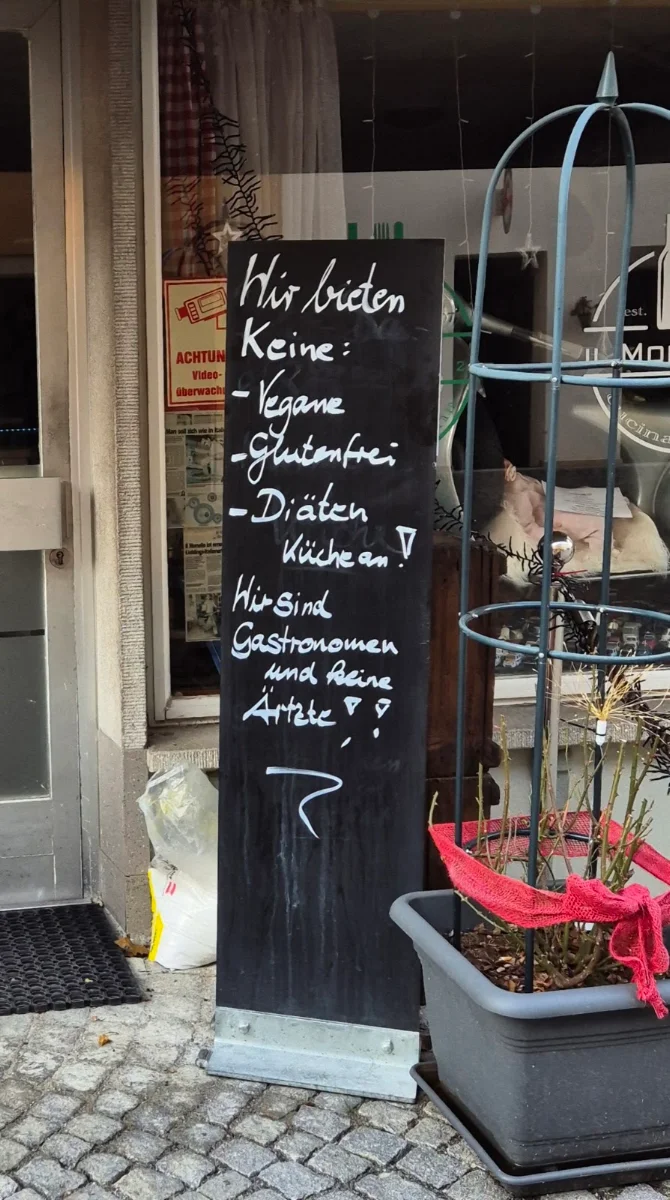 Wir bieten
Keine:
- Vegane
- Glutenfrei
- Diäten
Küche an!
Wir sind
Gastronomen
und keine
Ärtzte!!
ACHTUN
Video-
überwach
est.